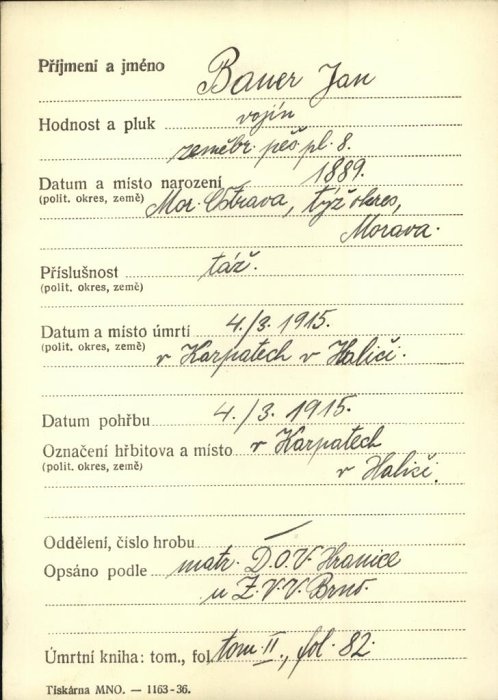 Příjmení a jméno Bauer Jan
Hodnost a pluk vojín
zeměbr. peš. pl. 8.
Datum a místo narození 1889.
(polit. okres, země) Mor. Ostrava, týž okres,
Morava.
Příslušnost táž.
(polit. okres, země)
Datum a místo úmrtí 4./3. 1915.
(polit. okres, země) v Karpatech v Haliči.
Datum pohřbu 4./3. 1915.
Označení hřbitova a místo v Karpatech
(polit. okres, země) v Haliči.
Oddělení, číslo hrobu —
Opsáno podle matr. D.O.V. Hranice
u Z.V.V. Brno.
Úmrtní kniha: tom., fol. tom II., fol. 82.
Tiskárna MNO. — 1163-36.